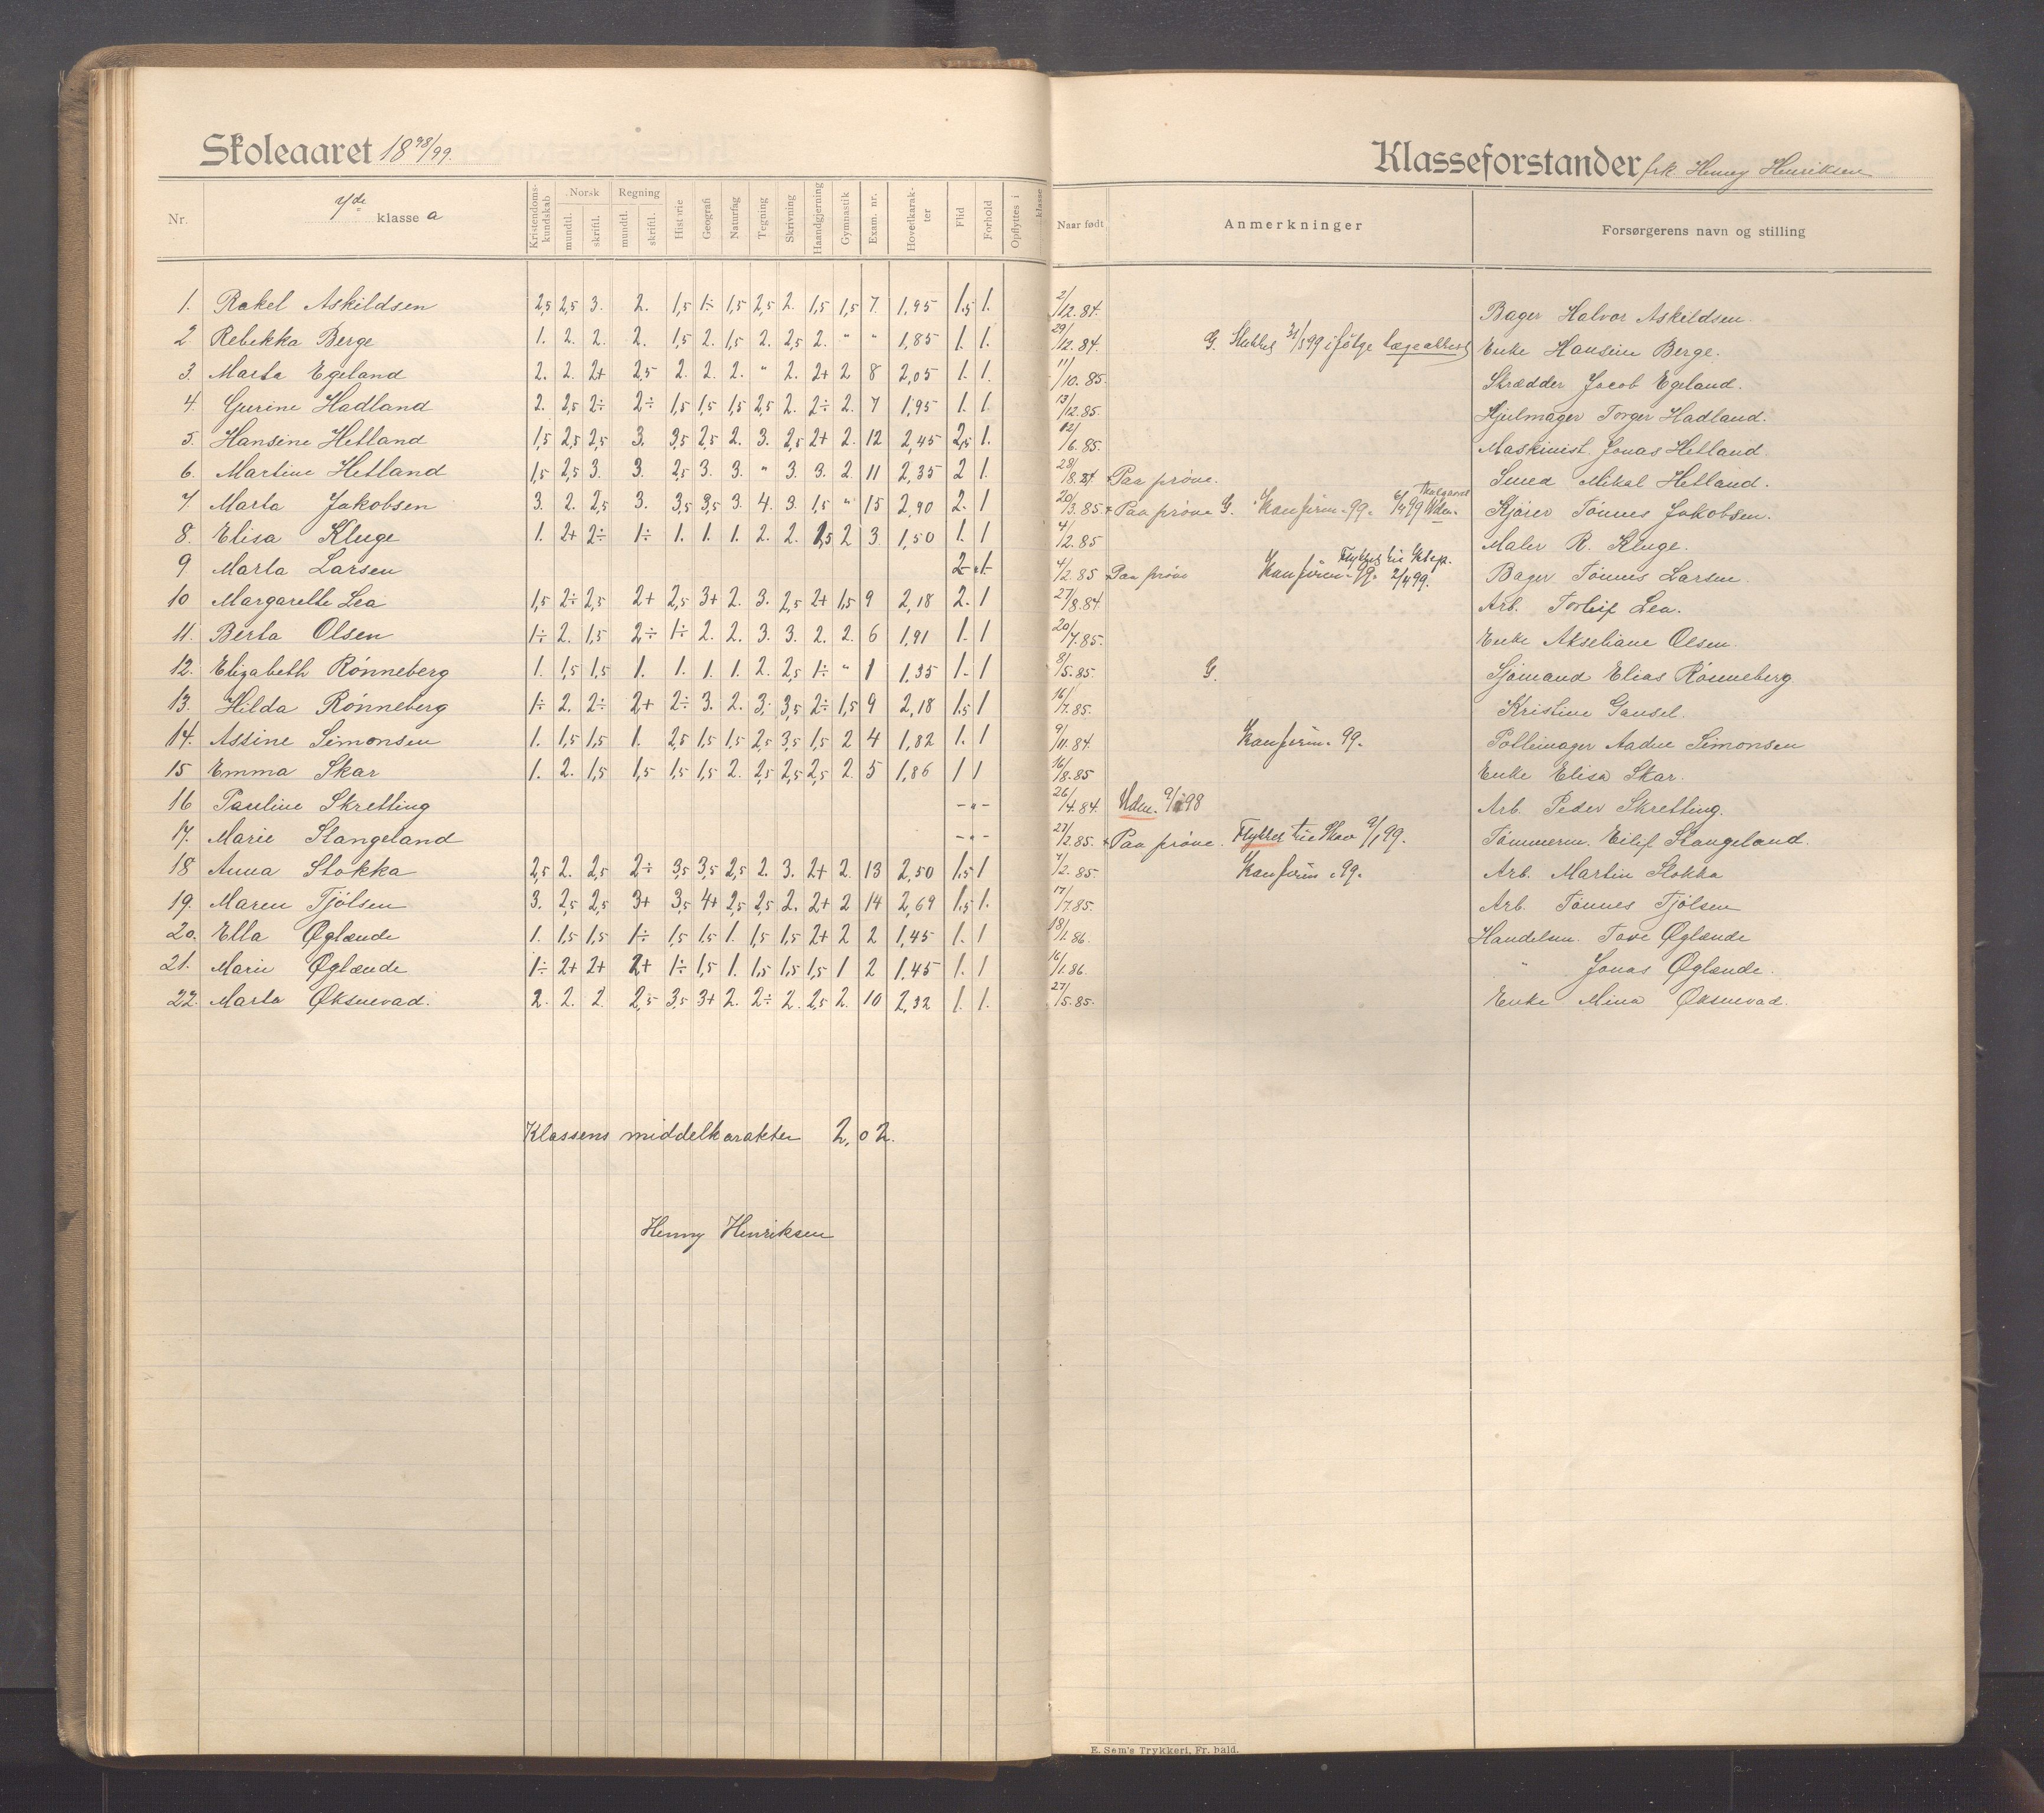 Skoleaaret 18 98/99.
Klasseforstander frk. Henny Henriksen
Nr. 7de klasse a Kristendomskundskab Norsk mundtl. skriftl. Regning mundtl. skriftl. Historie Geografi Naturfag Tegning Skrivning Haandgjerning Gymnastik Exam. nr. Hovedkarakter Flid Forhold Opflyttes i klasse Naar født Anmerkninger Forsørgerens navn og stilling
1. Rakel Askildsen 2,5 2,5 3. 2. 1,5 1÷ 1,5 2,5 2. 1,5 1,5 7. 1,95 1,5 1. 2/12.84. Bager Halvor Askildsen.
2 Rebekka Berge 1. 2. 2. 2. 1,5 2. 1,5 2. 2,5 2. " " 1,85 1. 1. 29/12.84. G. Sluttet 31/5 99 ifølge lægeattest Enke Hansine Berge.
3. Marta Egeland 2. 2. 2+ 2,5 2. 2. 2. " 2. 2+ 2 8 2,05 1. 1. 11/10.85. Skrædder Jacob Egeland.
4. Gurine Hadland 2. 2,5 2÷ 2÷ 1,5 1,5 1,5 2,5 2. 2÷ 2. 7 1,95 1. 1. 13/12.85. Hjulmager Torger Hadland.
5. Hansine Hetland 1,5 2,5 2,5 3. 3,5 2,5 2. 3. 2,5 2+ 2. 12 2,45 2,5 1. 12/6.85. Maskinist Jonas Hetland.
6. Martine Hetland 1,5 2,5 3. 3. 2,5 3. 3. " 3. 3. 2 11 2,35 2 1. 28/8.84 + Paa prøve. Smed Mikal Hetland.
7 Marta Jakobsen 3. 2. 2,5 3. 3,5 3,5 3. 4. 3. 1,5 " 15 2,90 2. 1 20/3.85 + Paa prøve G. Konfirm. 99. Udm. Kjører Tønnes Jakobsen.
8. Elisa Kluge 1. 2+ 2÷ 1÷ 1. 1. 1. 2. 2. 2,5 2 3. 1,50 1. 1 4/12.85 Maler R. Kluge.
9 Marta Larsen 2 - " - 1 4/2.85 + Paa prøve Konfirm. 99. Flyttet til 2/4 99. Bager Tønnes Larsen.
10 Margarethe Lea 1,5 2÷ 2,5 2+ 2,5 3+ 2. 3. 2,5 2+ 1,5 9 2,18 2. 1 27/8.84. Arb. Torleif Lea.
11. Berta Olsen 1÷ 2. 1,5 2÷ 1÷ 2. 2. 3. 3. 2. 2. 6 1,91 1. 1 20/7.85. Enke Akseliane Olsen.
12. Elizabeth Rønneberg 1. 1,5 1,5 1. 1. 1. 1. 2. 2,5 1÷ " 1 1,35 1. 1 8/5.85. G. Sjømand Elias Rønneberg.
13. Hilda Rønneberg 1÷ 2. 2÷ 2+ 2÷ 3. 2. 3. 3,5 2÷ 1,5 9 2,18 1,5 1 16/7.85. Kristine Gausel.
14. Assine Simonsen 1. 1,5 1,5 1. 2,5 1,5 1,5 2,5 3,5 1,5 2 4 1,82 1. 1 9/11.84. Konfirm. 99. Pottemager Aadne Simonsen
15 Emma Skar 1. 2. 1,5 1,5 1,5 1,5 2. 2,5 2,5 2,5 2. 5 1,86 1 1 16/8.85 Enke Elisa Skar.
16 Pauline Skretting - " - 26/4.84. Udm. 98 Arb. Peder Skretting.
17. Marie Stangeland - " - 27/2.85. + Paa prøve. Flyttet til 9/1 99. Tømmerm. Eilif Stangeland.
18 Anna Stokka 2,5 2. 2,5 2÷ 3,5 3,5 2,5 2. 3. 2+ 2. 13 2,50 1,5 1 4/2.85. Konfirm. 99. Arb. Martin Stokka
19. Maren Tjølsen 3. 2,5 2,5 3+ 3,5 4+ 2,5 2,5 2. 2+ 2 14 2,69 1,5 1. 17/7.85. Arb. Tønnes Tjølsen
20. Ella Øglænde 1. 1,5 1,5 1÷ 1,5 1,5 1. 1,5 1,5 2+ 2 2 1,45 1. 1 18/1.86. Handelsm. Tore Øglænde
21. Marie Øglænde 1÷ 2+ 2+ 2+ 1÷ 1,5 1. 1,5 1,5 1,5 1 2 1,45 1. 1 16/1.86. " Jonas Øglænde.
22. Marta Øksnevad. 2. 2. 2. 2,5 3,5 3+ 2. 2÷ 2. 2,5 2. 10 2,32 1. 1. 27/5.85. Enke Mina Øksnevad.
Klassens middelkarakter 2,02.
Henny Henriksen
E. Sem's Trykkeri, Fr. hald.